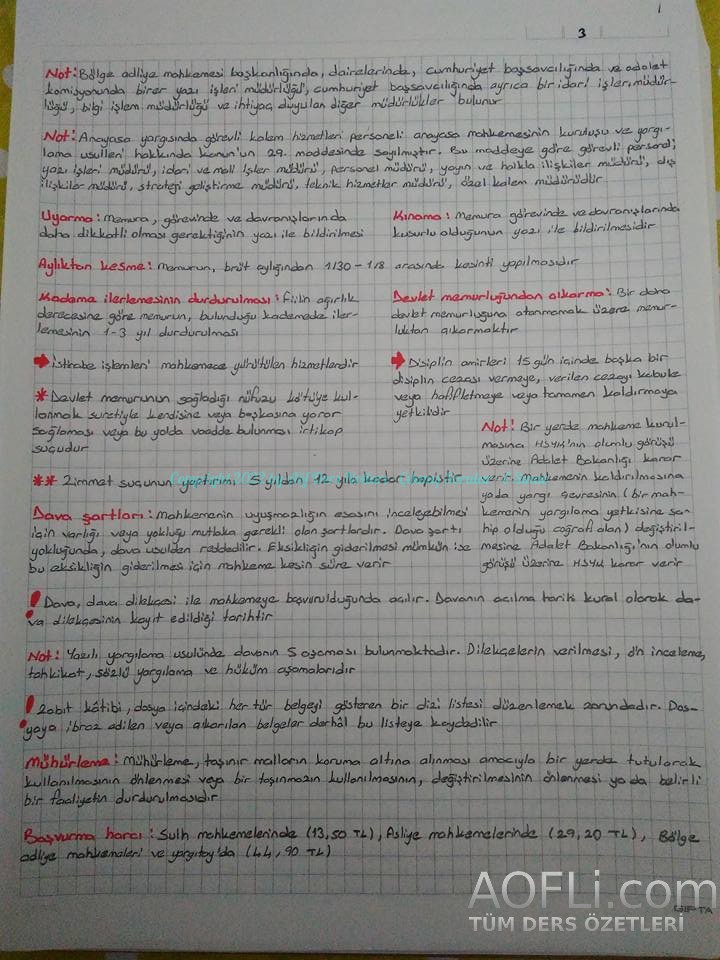 3
Not: Bölge adliye mahkemesi başkanlığında, dairelerinde, cumhuriyet başsavcılığında ve adalet
komisyonunda birer yazı işleri müdürlüğü, cumhuriyet başsavcılığında ayrıca bir idari işler müdür-
lüğü, bilgi işlem müdürlüğü ve ihtiyaç duyulan diğer müdürlükler bulunur
Not: Anayasa yargısında görevli kalem hizmetleri personeli anayasa mahkemesinin kuruluşu ve yargı-
lama usulleri hakkında kanun'un 29. maddesinde sayılmıştır. Bu maddeye göre görevli personel;
yazı işleri müdürü, idari ve mali işler müdürü, personel müdürü, yayın ve halkla ilişkiler müdürü, dış
ilişkiler müdürü, strateji geliştirme müdürü, teknik hizmetler müdürü, özel kalem müdürüdür
Uyarma: Memura, görevinde ve davranışlarında
daha dikkatli olması gerektiğinin yazı ile bildirilmesi
Kınama: Memura görevinde ve davranışlarında
kusurlu olduğunun yazı ile bildirilmesidir
Aylıktan kesme: Memurun, brüt aylığından 1/30 - 1/8 arasında kesinti yapılmasıdır
Kademe ilerlemesinin durdurulması: Fiilin ağırlık
derecesine göre memurun, bulunduğu kademede iler-
lemesinin 1-3 yıl durdurulması
Devlet memurluğundan çıkarma: Bir daha
devlet memurluğuna atanmamak üzere memur-
luktan çıkarmaktır
İstinabe işlemleri mahkemece yürütülen hizmetlerdir
Disiplin amirleri 15 gün içinde başka bir
disiplin cezası vermeye, verilen cezayı kabule
veya hafifletmeye veya tamamen kaldırmaya
yetkilidir
* Devlet memurunun sağladığı nüfuzu kötüye kul-
lanmak suretiyle kendisine veya başkasına yarar
sağlaması veya bu yolda vaadde bulunması irtikap
suçudur
** Zimmet suçunun yaptırımı 5 yıldan 12 yıla kadar hapistir
Not: Bir yerde mahkeme kurul-
masına HSYK'nın olumlu görüşü
üzerine Adalet Bakanlığı karar
verir. Mahkemenin kaldırılmasına
yada yargı çevresinin (bir mah-
kemenin yargılama yetkisine sa-
hip olduğu coğrafi alan) değiştiril-
mesine Adalet Bakanlığı'nın olumlu
görüşü üzerine HSYK karar verir
Dava şartları: Mahkemenin uyuşmazlığın esasını inceleyebilmesi
için varlığı veya yokluğu mutlaka gerekli olan şartlardır. Dava şartı
yokluğunda, dava usulden reddedilir. Eksikliğin giderilmesi mümkün ise
bu eksikliğin giderilmesi için mahkeme kesin süre verir
! Dava, dava dilekçesi ile mahkemeye başvurulduğunda açılır. Davanın açılma tarihi kural olarak da-
va dilekçesinin kayıt edildiği tarihtir
Not: Yazılı yargılama usulünde davanın 5 aşaması bulunmaktadır. Dilekçelerin verilmesi, ön inceleme,
tahkikat, sözlü yargılama ve hüküm aşamalarıdır
! Zabıt kâtibi, dosya içindeki her tür belgeyi gösteren bir dizi listesi düzenlemek zorundadır. Dos-
yaya ibraz edilen veya çıkarılan belgeler derhâl bu listeye kaydedilir
Mühürleme: Mühürleme, taşınır malların koruma altına alınması amacıyla bir yerde tutularak
kullanılmasının önlenmesi veya bir taşınmazın kullanılmasının, değiştirilmesinin önlenmesi ya da belirli
bir faaliyetin durdurulmasıdır
Başvurma harcı: Sulh mahkemelerinde (13,50 TL), Asliye mahkemelerinde (29,20 TL), Bölge
adliye mahkemeleri ve yargıtay'da (44,90 TL)
AOFLi.com
TÜM DERS ÖZETLERİ